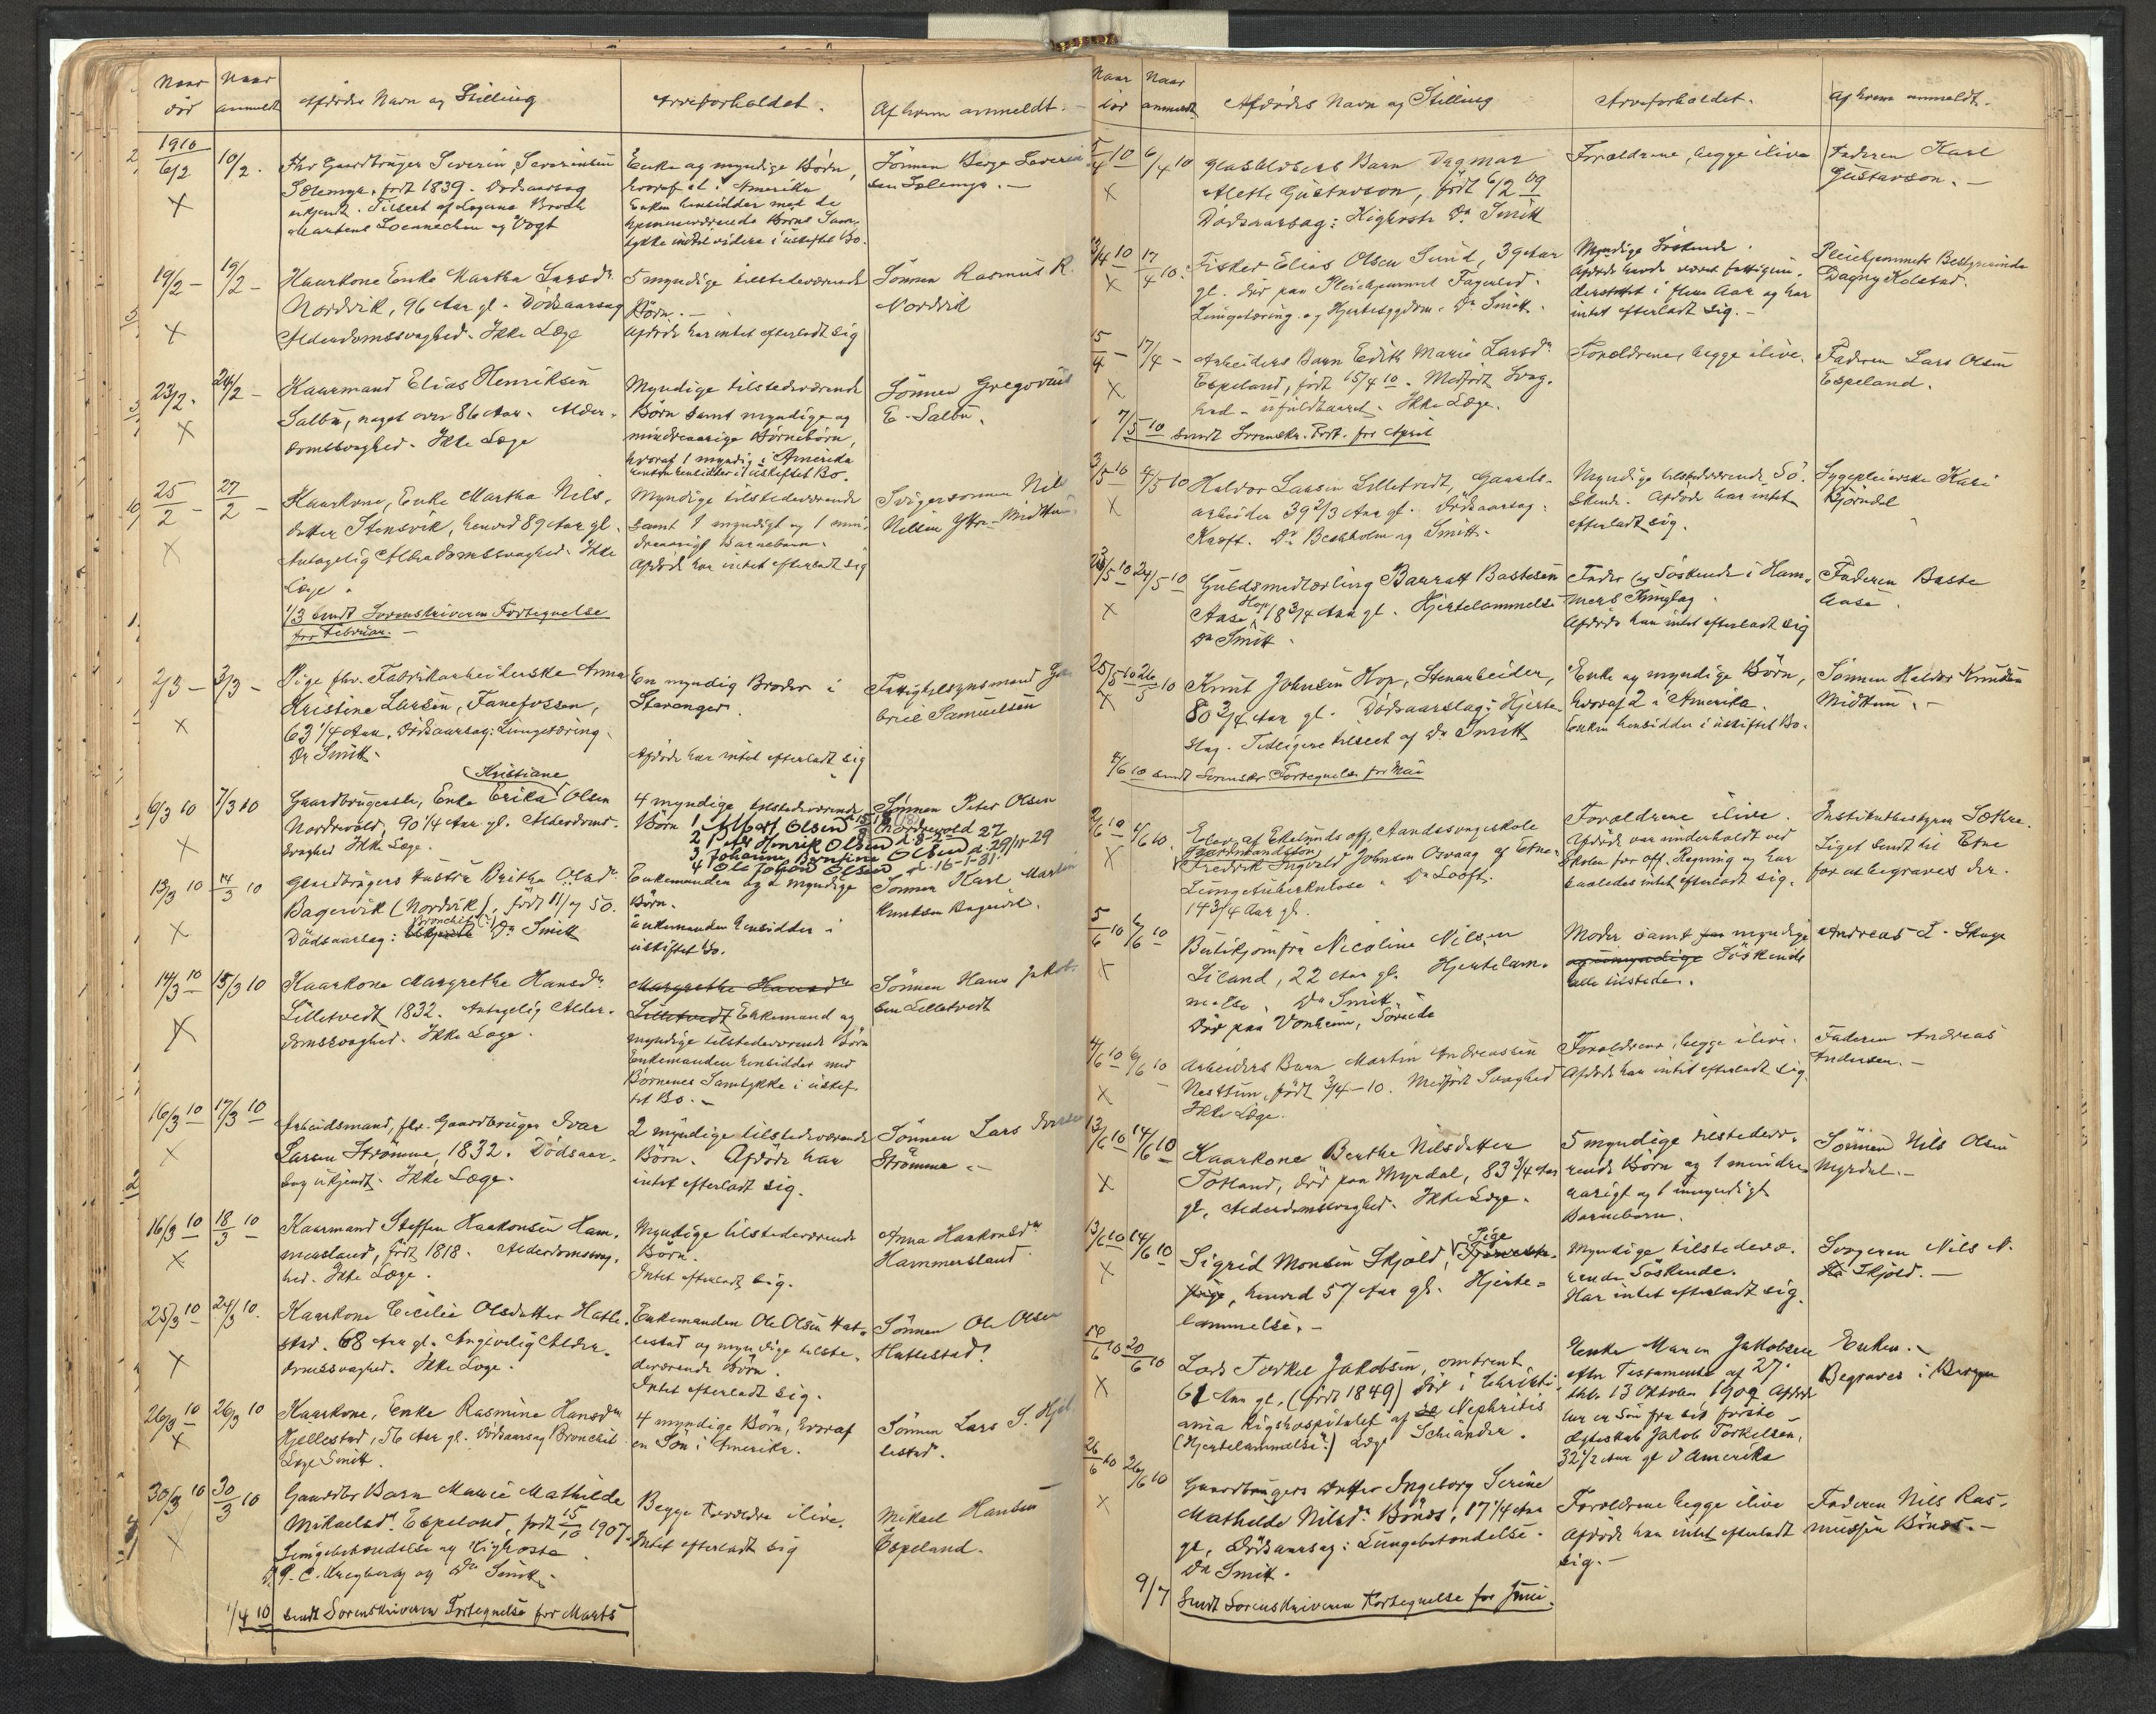 Naar død
Naar anmeldt
Afdødes Navn og Stilling
Arveforholdet.
Af hvem anmeldt.
1910
6/2
10/2.
Fhv Gaardbruger Severin Severinsen
født 1839. Dødsaarsag
ukjendt. Tilseet af Lægerne Broch
Martens Loennechen og Vogt
Enke og myndige Børn,
hvoraf et i Amerika
Enken hensidder med de
hjemmeværende Børns Sam-
tykke indtil videre i uskiftet Bo.
Sønnen Berge Severin
sen
19/2 -
19/2 -
Kaarkone Enke Martha Larsdr
Nordvik, 96 Aar gl. Dødsaarsag
Alderdomssvaghed. Ikke Læge
5 myndige tilstedeværende
Børn. -
Afdøde har intet efterladt sig
Sønnen Rasmus R.
Nordvik
23/2.
24/2 -
Kaarmand Elias Henriksen
Salbu, noget over 86 Aar. Alder-
domssvaghed. Ikke Læge
Myndige tilstedeværende
Børn samt myndige og
mindreaarige Børnebørn,
hvoraf 1 myndig i Amerika
Enken hensidder i uskiftet Bo.
Sønnen Gregorius
E. Salbu.
25/2 -
27/2 -
Kaarkone, Enke Martha Nils-
datter Stensvik, henved 89 Aar gl.
Antagelig Alderdomssvaghed. Ikke
Læge.
Myndige tilstedeværende
samt 1 myndigt og 1 min-
dreaarigt Barnebarn.
Afdøde har intet efterladt sig
Svigersønnen Nils
Nilsen Ytre-Midttun
1/3 sendt Sorenskriveren Fortegnelse
for Februar. -
2/3 -
3/3 -
Pige fhv. Fabrikarbeiderske Anna
Kristine Larsen, Fanefossen,
63 1/4 Aar. Dødsaarsag: Lungetæring.
Dr Smitt.
En myndig Broder i
Stavanger.
Afdøde har intet efterladt sig
Fattigtilsynsmand Ga
briel Samuelsen
6/3 10
7/3 10
Kristiane
Gaardbrugerske, Enke Erika Olsen
Nordvold, 90 1/4 Aar gl. Alderdoms-
svaghed Ikke Læge.
4 myndige tilstedeværende
Børn 1 Albert Olsen
2 Peder Henrik Olsen d. 8-2-27
3 Johanne Bernfine Olsen d. 29/11-29
4 Ole Johan Olsen d. 16-1-31
Sønnen Peter Olsen
Nordvold
13/3 10
14/3 10
Gaardbrugers Hustru Britha Olsdr
Bagervik (Nordvik), født 11/9 50.
Bronchit (?)
Dødsaarsag: Dr Smitt
Enkemanden og 2 myndige
Børn.
Enkemanden hensidder i
uskiftet Bo.
Sønnen Karl Martin
Knutsen Bagervik.
14/3 10
15/3 10
Kaarkone Margrethe Hansdr
Lilletvedt 1832. Antagelig Alder-
domssvaghed. Ikke Læge.
Margrethe Hansdr
Lilletvedt Enkemand og
myndige tilstedeværende Børn
Enkemanden hensidder med
Børnenes Samtykke i uskif-
tet Bo. -
Sønnen Hans Jakob-
sen Lilletvedt
16/3 10
17/3 10
Arbeidsmand, fhv. Gaardbruger Ivar
Larsen Strømme, 1832. Dødsaar-
sag ukjendt. Ikke Læge.
2 myndige tilstedeværende
Børn. Afdøde har
intet efterladt sig.
Sønnen Lars Ivarsen
Strømme. -
16/3 10
18/3 10
Kaarmand Steffen Haakonsen Ham-
mersland, født 1818. Alderdomssvag-
hed. Ikke Læge.
Myndige tilstedeværende
Børn.
Intet efterladt sig.
Anna Haakonsdr
Hammersland.
23/3 10
24/3 10.
Kaarkone Cecilie Olsdatter Hatle-
stad. 68 Aar gl. Angivelig Alder-
domssvaghed. Ikke Læge.
Enkemanden Ole Olsen Hat-
lestad og myndige tilste-
deværende Børn.
Intet efterladt sig.
Sønnen Ole Olsen
Hatlestad.
26/3 10
26/3 10
Kaarkone, Enke Rasmine Hansdr
Hjellestad, 76 Aar gl. Dødsaarsag Bronchit
Læge Smitt.
4 myndige Børn, hvoraf
en Søn i Amerika.
Sønnen Lars S. Hjel
lestad.
30/3 10
30/3 10
Gaardbr Barn Marie Mathilde
Mikaelsdr Espeland, født 15/10 1907.
Lungebetændelse og Kighoste
Dr. C. Kregberg og Dr Smitt.
Begge Forældre ilive.
Intet efterladt sig
Mikael Hansen
Espeland.
1/4 10 sendt Sorenskriveren Fortegnelse for Marts
Naar død
Naar anmeldt
Afdødes Navn og Stilling
Arveforholdet.
Af hvem anmeldt.
5/4 10
6/4 10
Barn Dagmar
Alette Gustavson, født 6/2 09
Dødsaarsag: Kighoste Dr Smitt
Forældrene, begge ilive
Faderen Karl
Gustavson. -
13/4 10
17/4 10.
Fisker Elias Olsen Sund, 39 Aar
gl. død paa Pleiehjemmet Fagerlid.
Lungetæring og Hjertesygdom. Dr Smitt.
Myndige Søskende.
Afdøde havde været fattigun-
derstøttet i flere Aar og har
intet efterladt sig. -
Pleiehjemmets Bestyrerinde
Dagny Kolstad.
15/4 -
17/4 -
Arbeiders Barn Edith Marie Larsdr
Espeland, født 15/4 10. Medfødt Svag-
hed - ufuldbaaret. Ikke Læge.
Forældrene, begge ilive.
Faderen Lars Olsen
Espeland.
7/5 10 sendt Sorenskr. Fort. for April
3/5 10
4/5 10
Haldor Larsen Lilletvedt, Gaards-
arbeider 39 2/3 Aar gl. Dødsaarsag:
Kræft. Dr Beckholm og Smitt.
Myndige tilstedeværende Sø-
skende. Afdøde har intet
efterladt sig.
Sygepleierske Kari
Bjørndal
23/5 10
24/5 10
Guldsmedlærling Barratt Bastesen
Hop
Aase, 18 3/4 Aar gl. Hjertelammelse
Dr Smitt.
Fader og Søskende i Ham-
mers Thinglag.
Afdøde har intet efterladt sig
Faderen Baste
Aase.
25/5 10
26/5 10
Knut Johnsen Hop, Stenarbeider,
80 3/4 Aar gl. Dødsaarsag: Hjerte-
slag. Tidligere tilseet af Dr Smitt
Enke og myndige Børn,
hvoraf 2 i Amerika.
Enken hensidder i uskiftet Bo.
Sønnen Haldor Knudsen
Midttun. -
4/6 10 sendt Sorenskr Fortegnelse for Mai
2/6 10
4/6 10.
Elev af Ekelunds off. Aandssvageskole
Fredrik Ingvald Johnsen Osvaag af Etne.
Lungetuberkulose. Dr Looft.
14 3/4 Aar gl.
Forældrene ilive.
Afdøde var underholdt ved
Skolen for off. Regning og har
saaledes intet efterladt sig.
Institutbestyrer Sæthre.
Liget sendt til Etne
for at begraves der.
5/6 10
6/6 10
Butikjomfru Nicoline Nilsen
Liland, 22 Aar gl. Hjertelam-
melse. Dr Smitt.
Død paa Vonheim, Søreide
Moder samt myndige
Søskende
alle tilstede.
Andreas L. Skage
4/6 10
6/6 10
Arbeiders Barn Martin Andreassen
Nesttun, født 3/4-10. Medfødt Svaghed
Ikke Læge.
Forældrene, begge ilive.
Afdøde har intet efterladt sig.
Faderen Andreas
Andersen. -
13/6 10
14/6 10
Kaarkone Berthe Nilsdatter
Totland, død paa Myrdal, 83 3/4 Aar
gl, Alderdomssvaghed. Ikke Læge.
5 myndige tilstedevæ-
rende Børn og 1 mindre-
aarigt og 1 umyndigt
Barnebarn.
Sønnen Nils Olsen
Myrdal. -
13/6 10
14/6 10
Pige
Sigrid Monsen Skjold,
henved 57 Aar gl. Hjerte-
lammelse. -
Myndige tilstedevæ-
rende Søskende.
Har intet efterladt sig.
Nils N.
Skjold. -
20/6 10
Lods Torkel Jakobsen, omtrent
61 Aar gl, (født 1849) død i Christi-
ania Rigshospitalet af Nephritis
(Hjertelammelse?) Læge
Enke Maren Jakobsen
efter Testamente af 27.
13 Oktober 1909 Afdøde
har en Søn fra sit første
Ægteskab Jakob Torkelsen,
32 1/2 Aar gl i Amerika
Enken. -
Begraves i Bergen
26/6 10
26/6 10
Gaardbrugers Datter Ingeborg Serine
Mathilde Nilsdr Bønes, 17 1/4 Aar
gl, Dødsaarsag: Lungebetændelse.
Dr Smitt.
Forældrene begge ilive
Afdøde har intet efterladt
sig. -
Faderen Nils Ras-
mussen Bønes. -
9/7 Sendt Sorenskriveren Fortegnelse for Juni.